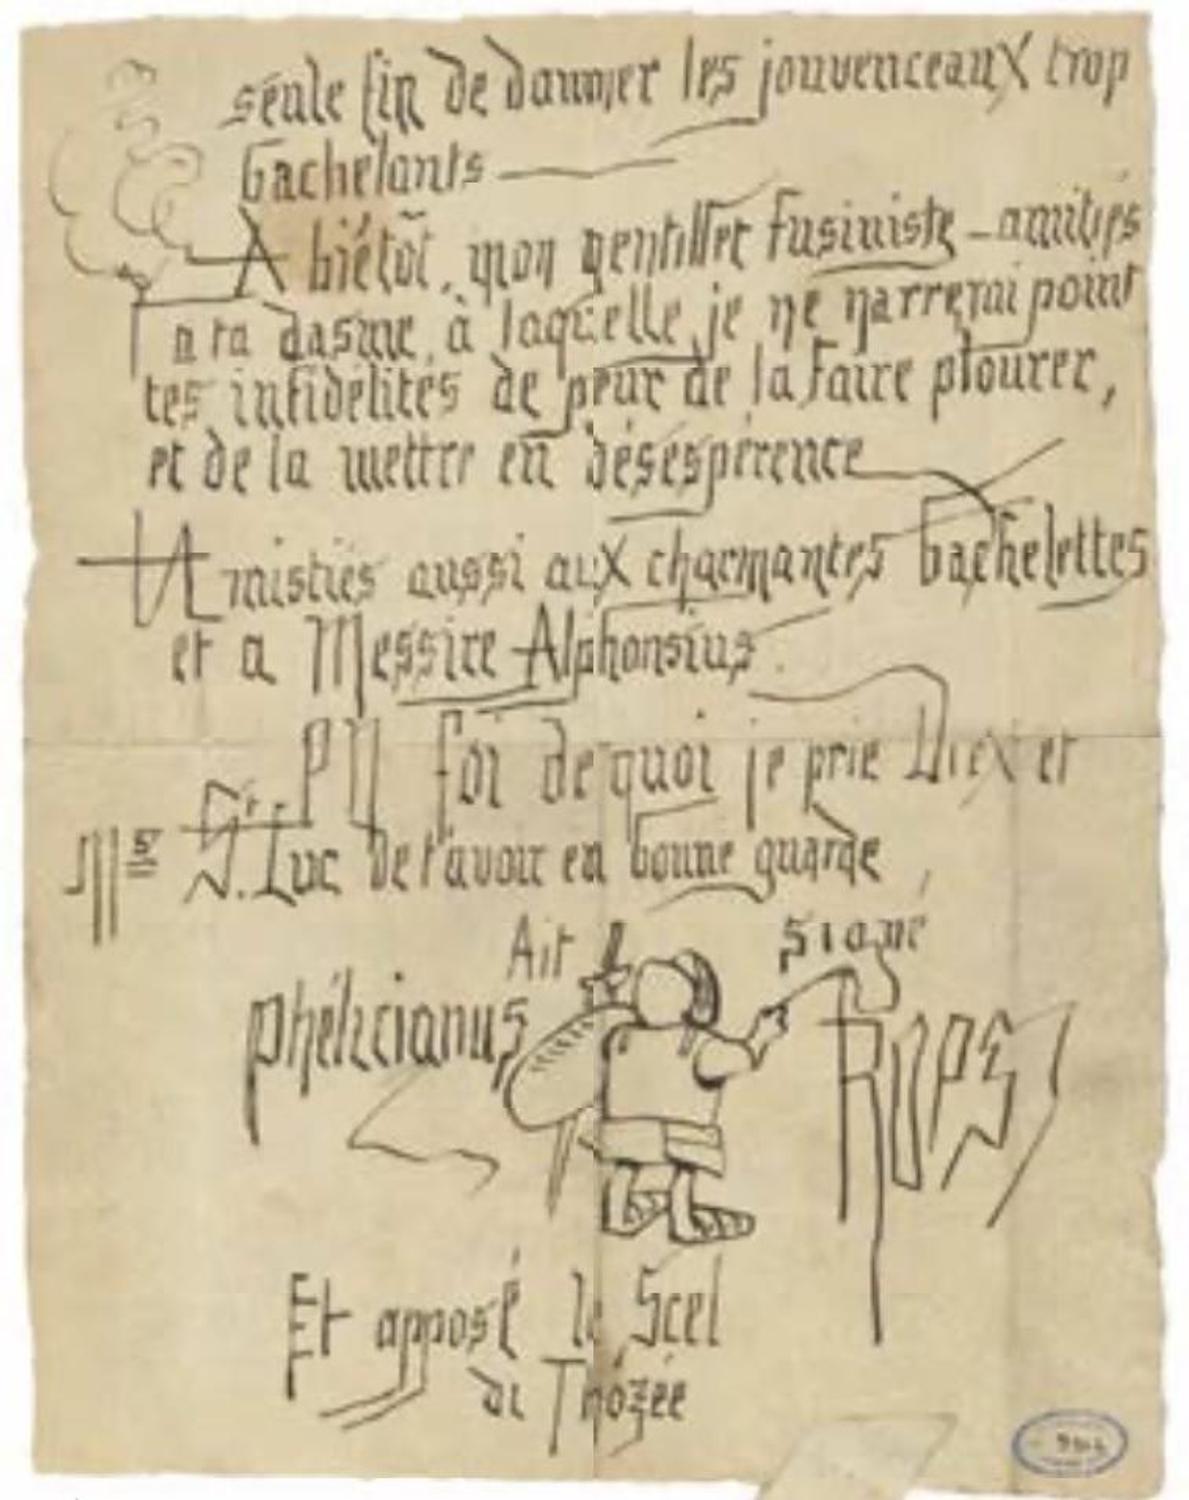 seule fin de damner les jouvenceaux trop
bachelants
A biétôt, mon gentillet Fusiniste - amitiés
a ta dasme, à laquelle je ne narrerai point
tes infidélités de peur de la faire plourer,
et de la mettre en désespérence
Amistiés aussi aux charmantes bachelettes
et a Messire Alphonsius.
En foi de quoi je prie Diex et
Mgr St. Luc de t'avoir en bonne guarde,
Ait signé
Phélicianus ROPS
Et apposé le Scel
de Thozée